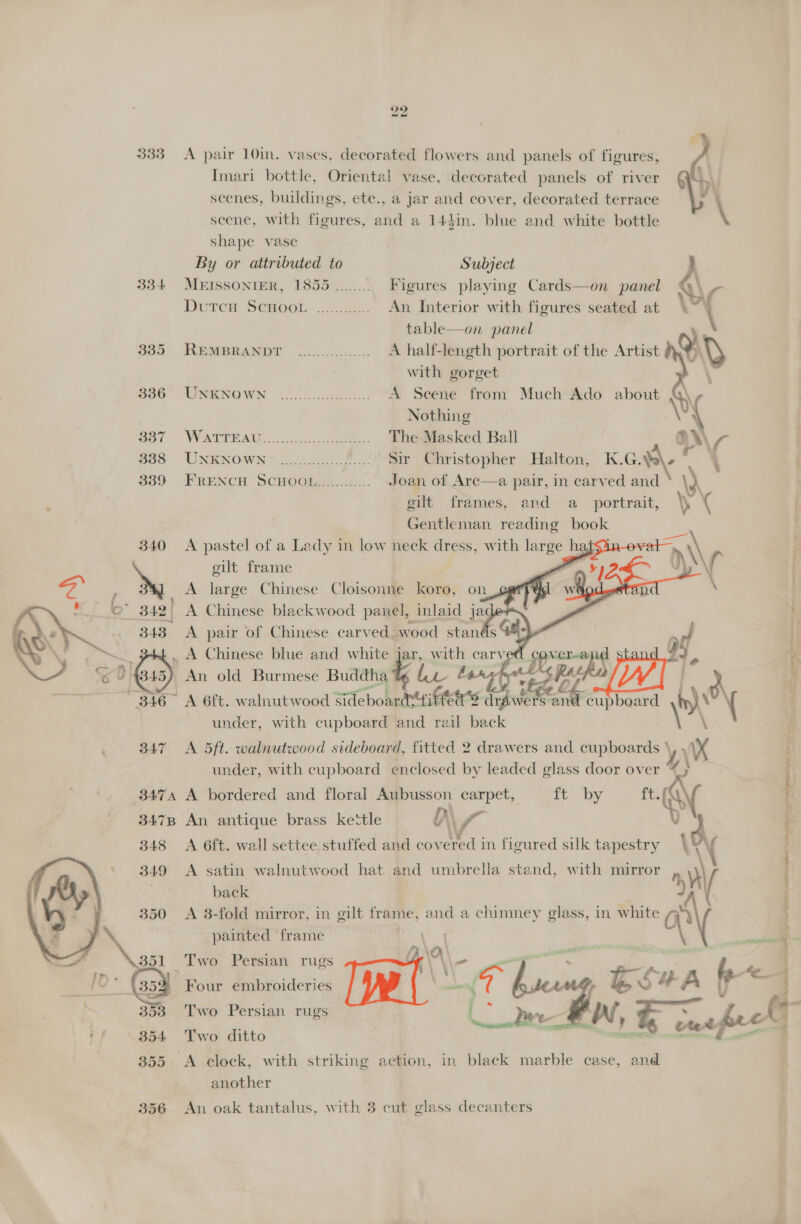 22
333 A pair 10in. vases, decorated flowers and panels of figures,
Imari bottle, Oriental vase, decorated panels of river
scenes, buildings, etc., a jar and cover, decorated terrace
scene, with figures, and a 14½in. blue and white bottle
shape vase
By or attributed to Subject
334 MEISSONIER, 1855 ........ Figures playing Cards—on panel
DUTCH SCHOOL ............ An Interior with figures seated at
table—on panel
335 REMBRANDT ............... A half-length portrait of the Artist
with gorget
336 UNKNOWN .................. A Scene from Much Ado about
Nothing
337 WATTEAU..................... The Masked Ball
338 UNKNOWN .................. Sir Christopher Halton, K.G.
339 FRENCH SCHOOL............ Joan of Arc—a pair, in carved and
gilt frames, and a portrait,
Gentleman reading book
340 A pastel of a Lady in low neck dress, with large hat, in oval
gilt frame
341 A large Chinese Cloisonne koro, on carved wood stand
342 A Chinese blackwood panel, inlaid jade
343 A pair of Chinese carved wood stands
344 A Chinese blue and white jar, with carved cover and stand
345 An old Burmese Buddha
346 A 6ft. walnutwood sideboard, fitted 2 drawers and cupboard
under, with cupboard and rail back
347 A 5ft. walnutwood sideboard, fitted 2 drawers and cupboards
under, with cupboard enclosed by leaded glass door over
347A A bordered and floral Aubusson carpet, ft by ft.
347B An antique brass kettle
348 A 6ft. wall settee stuffed and covered in figured silk tapestry
349 A satin walnutwood hat and umbrella stand, with mirror
back
350 A 3-fold mirror, in gilt frame, and a chimney glass, in white
painted frame
351 Two Persian rugs
352 Four embroideries
353 Two Persian rugs
354 Two ditto
355 A clock, with striking action, in black marble case, and
another
356 An oak tantalus, with 3 cut glass decanters